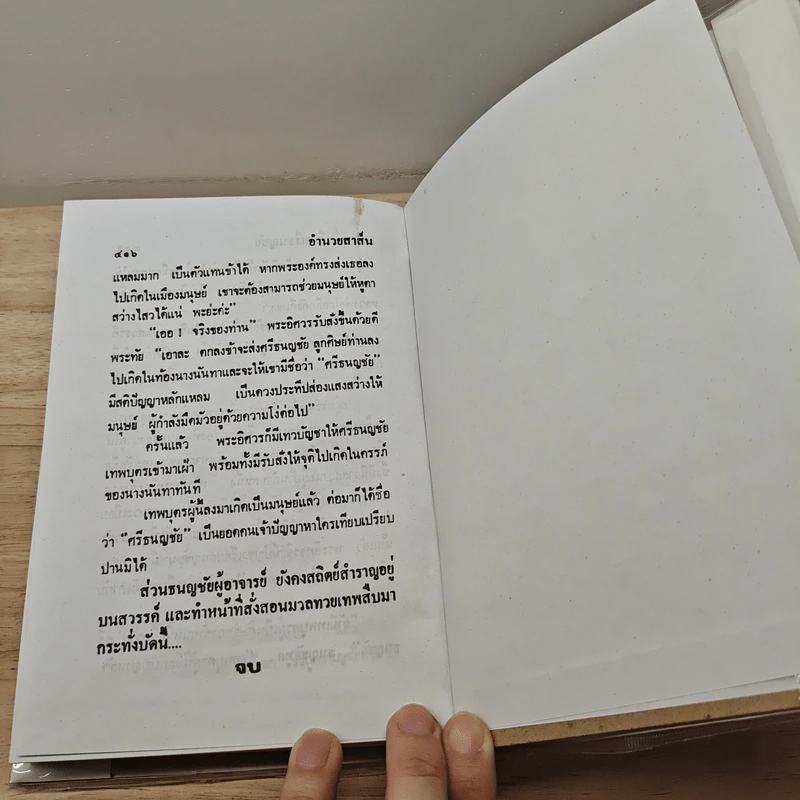 ๔๑๖
อำนวยสาส์น
แหลมมาก เป็นตัวแทนข้าได้ หากพระองค์ทรงส่งเธอลง
ไปเกิดในเมืองมนุษย์ เขาจะต้องสามารถช่วยมนุษย์ให้หูตา
สว่างไสวได้แน่ พะย่ะค่ะ”
“เออ ! จริงของท่าน” พระอิศวรรับสั่งขึ้นด้วยดี
พระทัย “เอาละ ตกลงข้าจะส่งศรีธนญชัย ลูกศิษย์ท่านลง
ไปเกิดในท้องนางนันทาและจะให้เขามีชื่อว่า “ศรีธนญชัย”
มีสติปัญญาหลักแหลม เป็นดวงประทีปส่องแสงสว่างให้
มนุษย์ ผู้กำลังมืดมัวอยู่ด้วยความโง่ต่อไป”
ครั้นแล้ว พระอิศวรก็มีเทวบัญชาให้ศรีธนญชัย
เทพบุตรเข้ามาเฝ้า พร้อมทั้งมีรับสั่งให้จุติไปเกิดในครรภ์
ของนางนันทาทันที
เทพบุตรผู้นี้ลงมาเกิดเป็นมนุษย์แล้ว ต่อมาก็ได้ชื่อ
ว่า “ศรีธนญชัย” เป็นยอดคนเจ้าปัญญาหาใครเทียบเปรียบ
ปานมิได้
ส่วนธนญชัยผู้อาจารย์ ยังคงสถิตย์สำราญอยู่
บนสวรรค์ และทำหน้าที่สั่งสอนมวลทวยเทพสืบมา
กระทั่งบัดนี้....
จบ